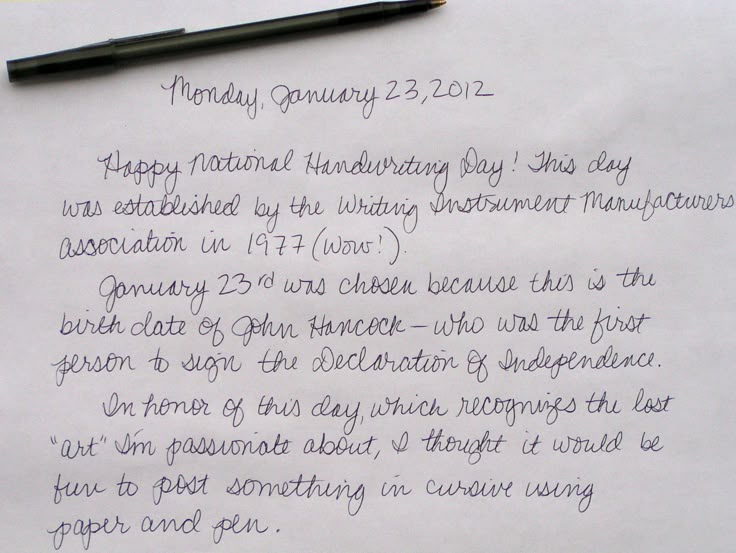 Monday, January 23, 2012
Happy National Handwriting Day! This day
was established by the Writing Instrument Manufacturers
Association in 1977 (wow!).
January 23rd was chosen because this is the
birth date of John Hancock - who was the first
person to sign the Declaration of Independence.
In honor of this day, which recognizes the lost
"art" I'm passionate about, I thought it would be
fun to post something in cursive using
paper and pen.